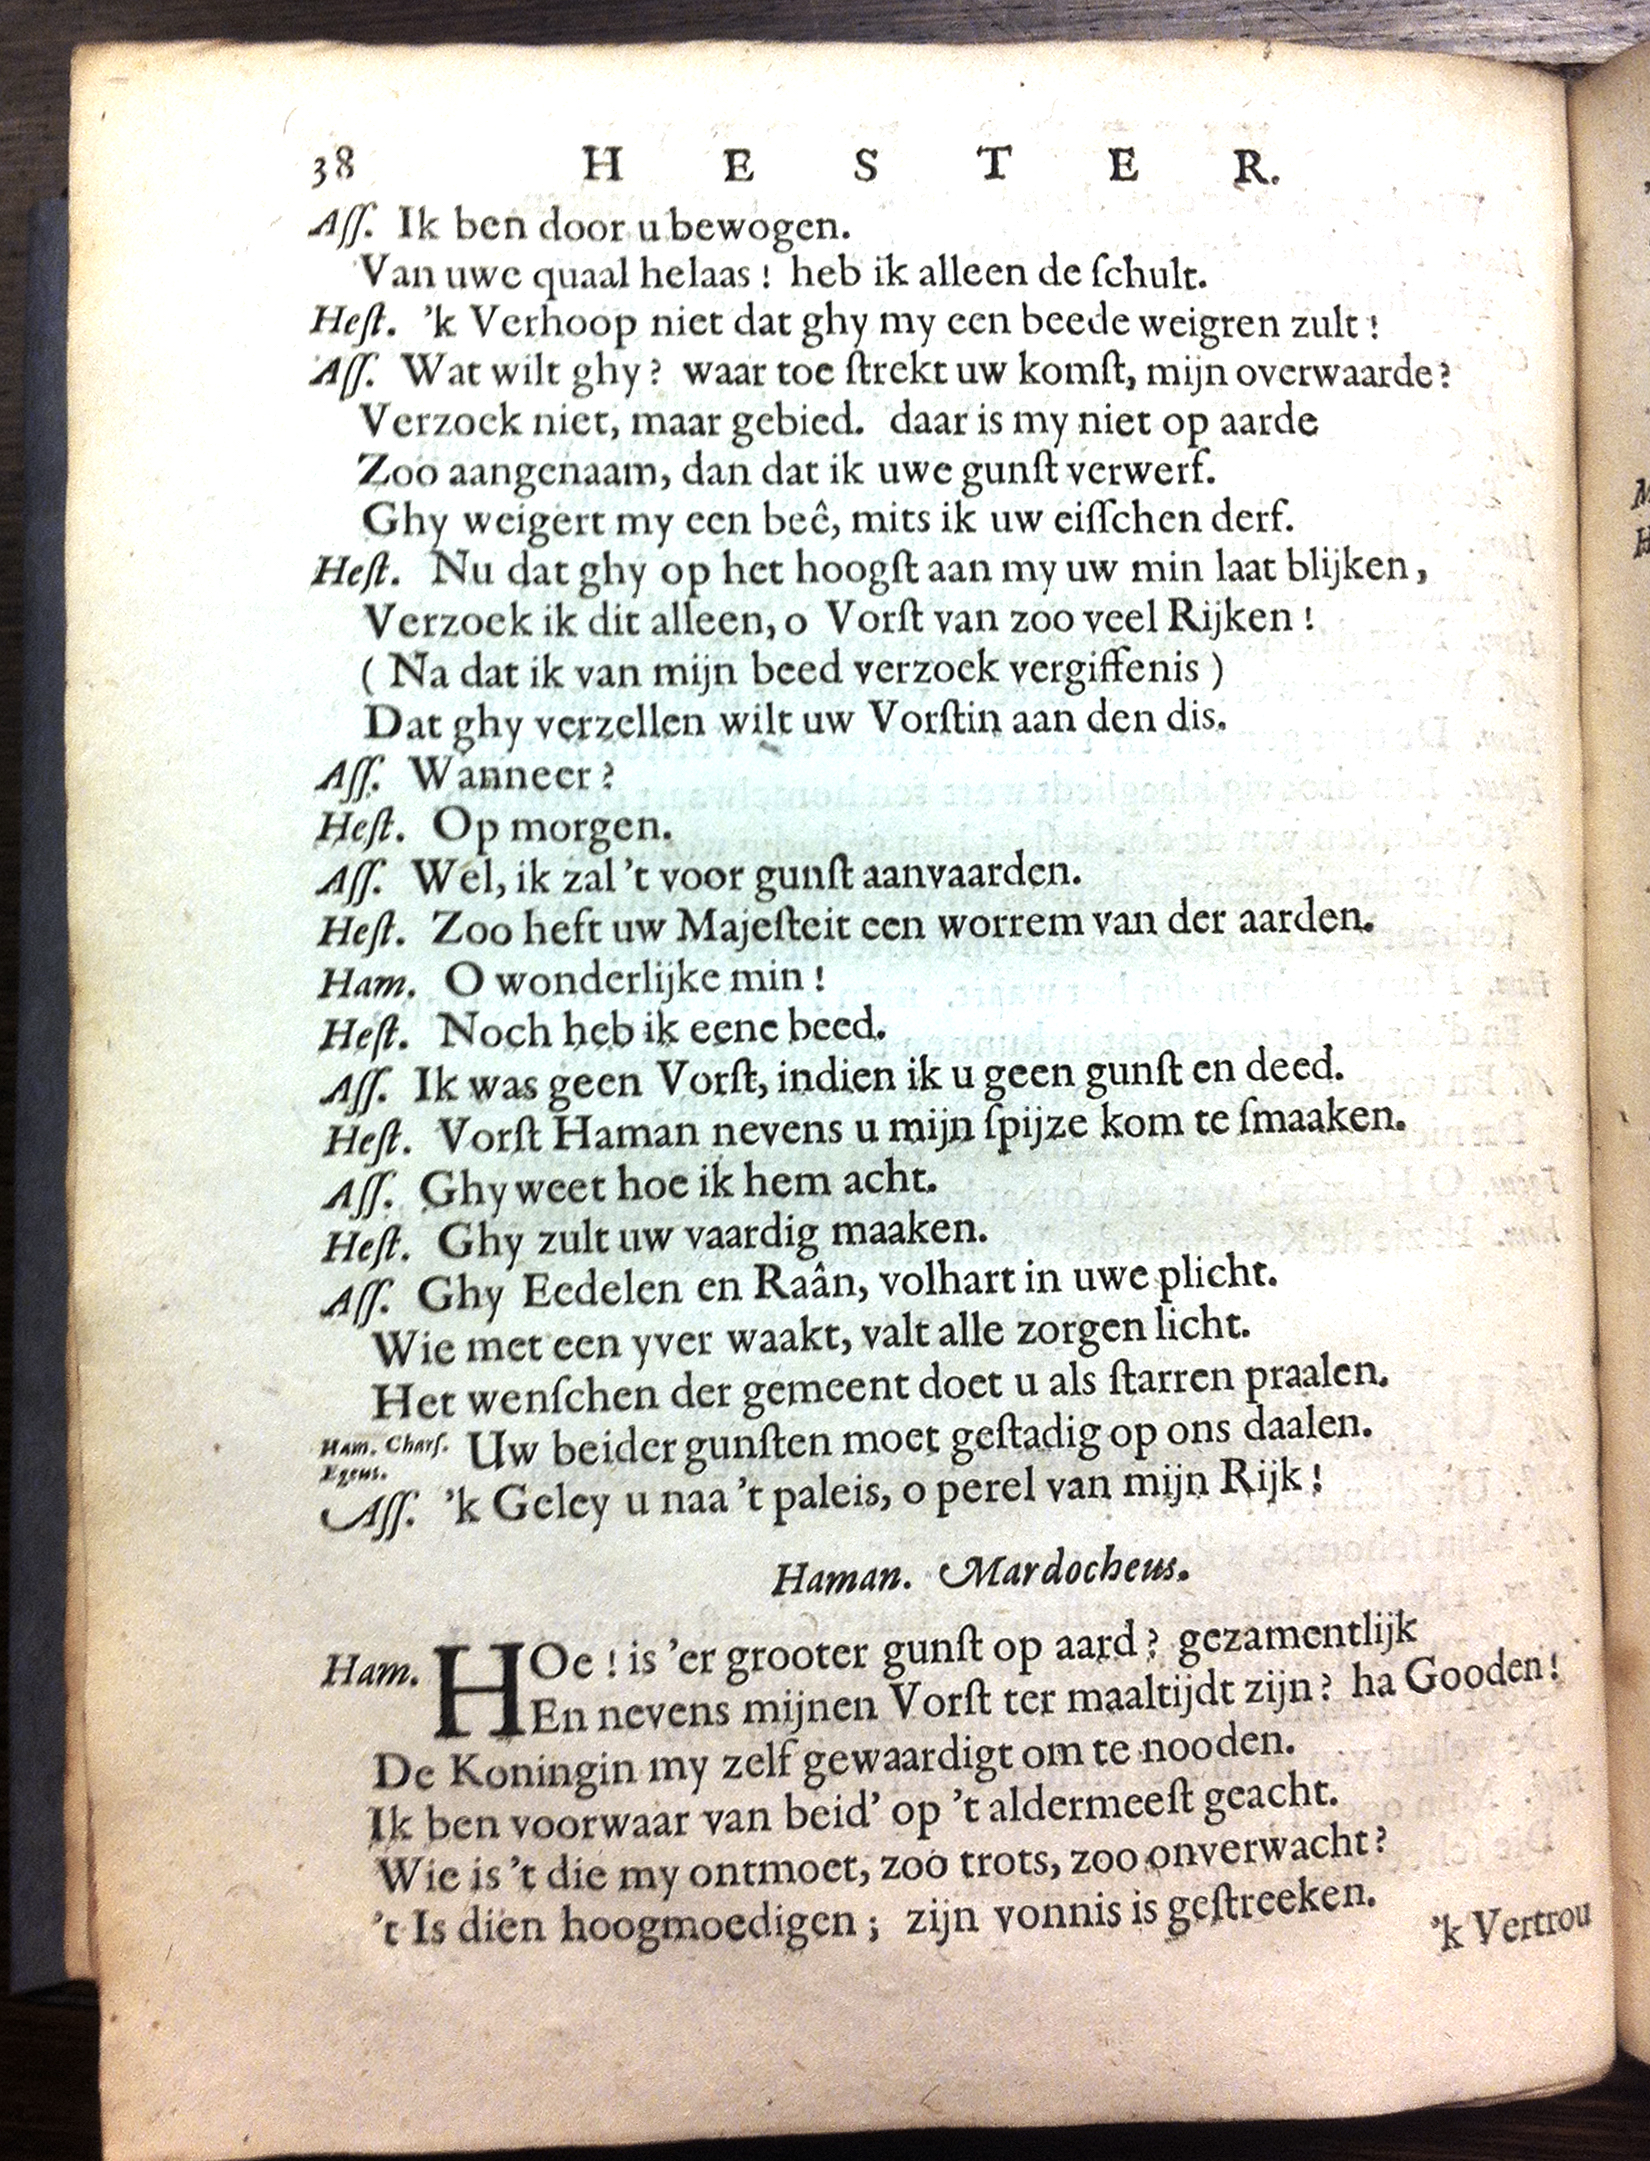 38 H E S T E R.
Aſſ. Ik ben door u bewogen.
Van uwe quaal helaas! heb ik alleen de ſchult.
Heſt. 'k Verhoop niet dat ghy my een beede weigren zult!
Aſſ. Wat wilt ghy? waar toe ſtrekt uw komſt, mijn overwaarde?
Verzoek niet, maar gebied. daar is my niet op aarde
Zoo aangenaam, dan dat ik uwe gunſt verwerf.
Ghy weigert my een beê, mits ik uw eiſſchen derf.
Heſt. Nu dat ghy op het hoogſt aan my uw min laat blijken,
Verzoek ik dit alleen, o Vorſt van zoo veel Rijken!
(Na dat ik van mijn beed verzoek vergiffenis)
Dat ghy verzellen wilt uw Vorſtin aan den dis.
Aſſ. Wanneer?
Heſt. Op morgen.
Aſſ. Wel, ik zal 't voor gunſt aanvaarden.
Heſt. Zoo heft uw Majeſteit een worrem van der aarden.
Ham. O wonderlijke min!
Heſt. Noch heb ik eene beed.
Aſſ. Ik was geen Vorſt, indien ik u geen gunſt en deed.
Heſt. Vorſt Haman nevens u mijn ſpijze kom te ſmaaken.
Aſſ. Ghy weet hoe ik hem acht.
Heſt. Ghy zult uw vaardig maaken.
Aſſ. Ghy Eedelen en Raân, volhart in uwe plicht.
Wie met een yver waakt, valt alle zorgen licht.
Het wenſchen der gemeent doet u als ſtarren praalen.
Ham. Charſ. Egeus. Uw beider gunſten moet geſtadig op ons daalen.
Aſſ. 'k Geley u naa 't paleis, o perel van mijn Rijk!
Haman. Mardocheus.
Ham. HOe! is 'er grooter gunſt op aard? gezamentlijk
En nevens mijnen Vorſt ter maaltijdt zijn? ha Gooden!
De Koningin my zelf gewaardigt om te nooden.
Ik ben voorwaar van beid' op 't aldermeeſt geacht.
Wie is 't die my ontmoet, zoo trots, zoo onverwacht?
't Is dien hoogmoedigen; zijn vonnis is geſtreeken.
'k Vertrou